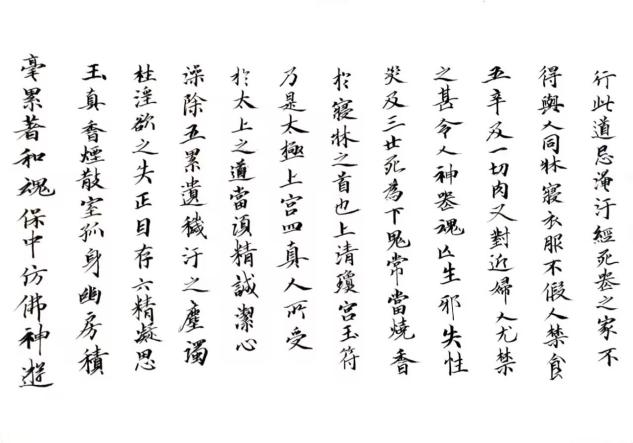 行此道忌淹汙經死喪之家不
得與人同牀寢衣服不假人禁食
五辛及一切肉又對近婦人尤禁
之甚令人神喪魂亡生邪失性
災及三世死為下鬼常當燒香
於寢牀之首也上清瓊宮玉符
乃是太極上宮四真人所受
於太上之道當須精誠潔心
澡除五累遺穢汙之塵濁
杜淫欲之失正目存六精凝思
玉真香煙散室孤身幽房積
毫累著和魂保中仿佛神遊